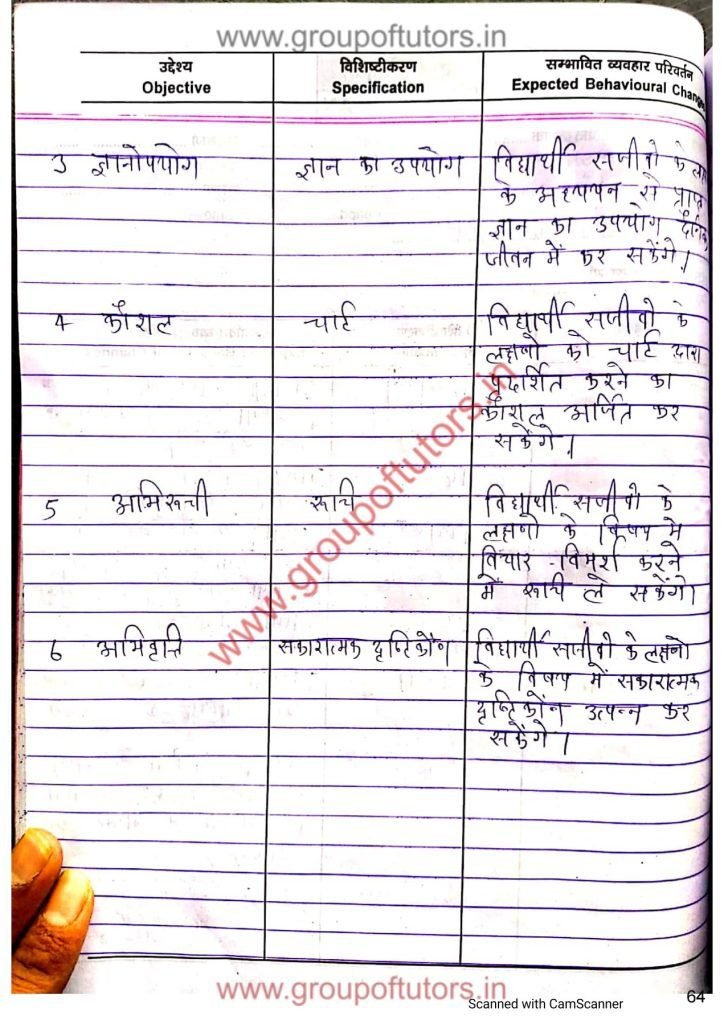 www.groupoftutors.in
उद्देश्य
Objective
विशिष्टीकरण
Specification
सम्भावित व्यवहार परिवर्तन
Expected Behavioural Change
3 ज्ञानोपयोग
ज्ञान का उपयोग
विद्यार्थी सजीवो के
के अध्ययन से प्राप्त
ज्ञान का उपयोग दैनिक
जीवन में कर सकेंगे।
4 कौशल
चार्ट
विद्यार्थी सजीवो के
लक्षणो को चार्ट द्वारा
प्रदर्शित करने का
कौशल अर्जित कर
सकेंगे।
5 अभिरूची
रूचि
विद्यार्थी सजीवो के
लक्षणो के विषय मे
विचार-विमर्श करने
में रूचि ले सकेंगे।
6 अभिवृत्ति
सकारात्मक दृष्टिकोंन
विद्यार्थी सजीवो के लक्षणो
के विषय में सकारात्मक
दृष्टिकोंन उत्पन्न कर
सकेंगे।
www.groupoftutors.in
www.groupoftutors.in
64
Scanned with CamScanner